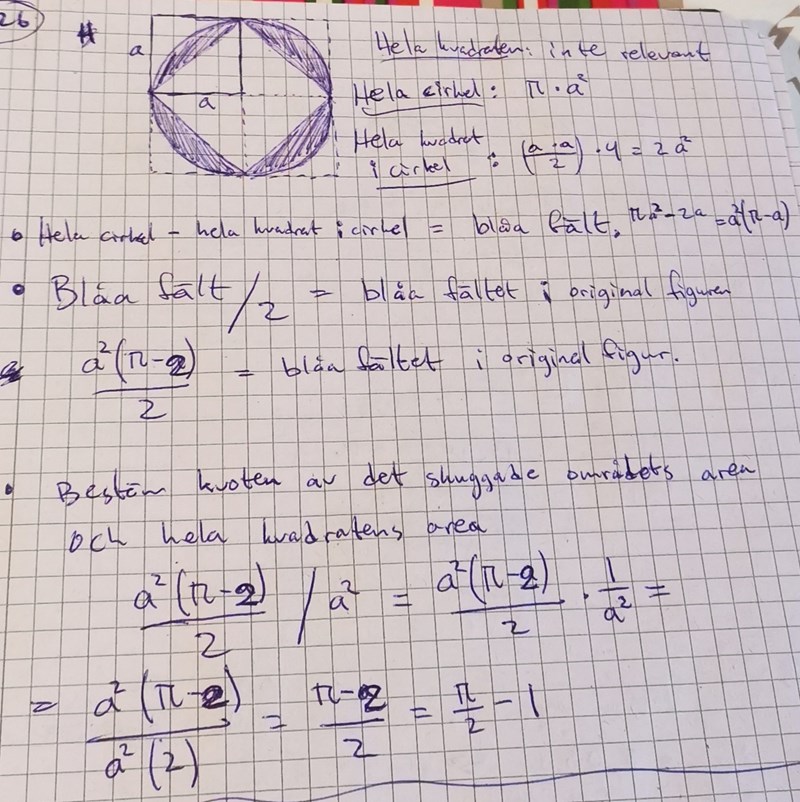 26
a
a
Hela kvadraten: inte relevant
Hela cirkel: π · a²
Hela kvadrat i cirkel : (a · a / 2) · 4 = 2a²
Hela cirkel - hela kvadrat i cirkel = blåa fält, πa² - 2a = a²(π-a)
Blåa fält / 2 = blåa fältet i original figuren
a²(π-2) / 2 = blåa fältet i original figur.
Bestäm kvoten av det skuggade områdets area
och hela kvadratens area
a²(π-2) / 2 / a² = a²(π-2) / 2 · 1/a² =
= a²(π-2) / a²(2) = π-2 / 2 = π/2 - 1